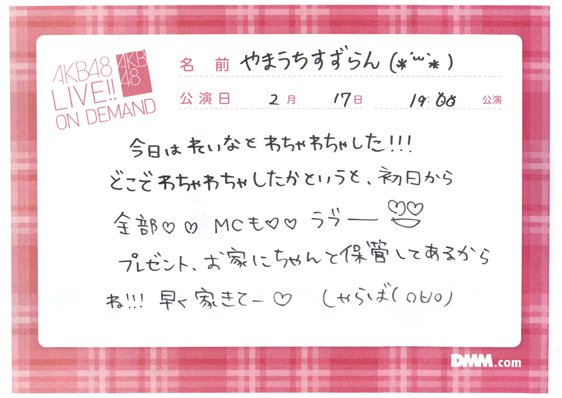 AKB48
LIVE!!
ON DEMAND
AKB
48
名 前 やまうちすずらん (*´˘`*)
公演日 2月 17日 19:00 公演
今日はれいなとわちゃわちゃした!!!
どこでわちゃわちゃしたかというと、初日から
全部♡♡ MCも♡♡ ラブー
プレゼント、お家にちゃんと保管してあるから
ね!!! 早く家きてー♡ しゃらば(
DMM.com